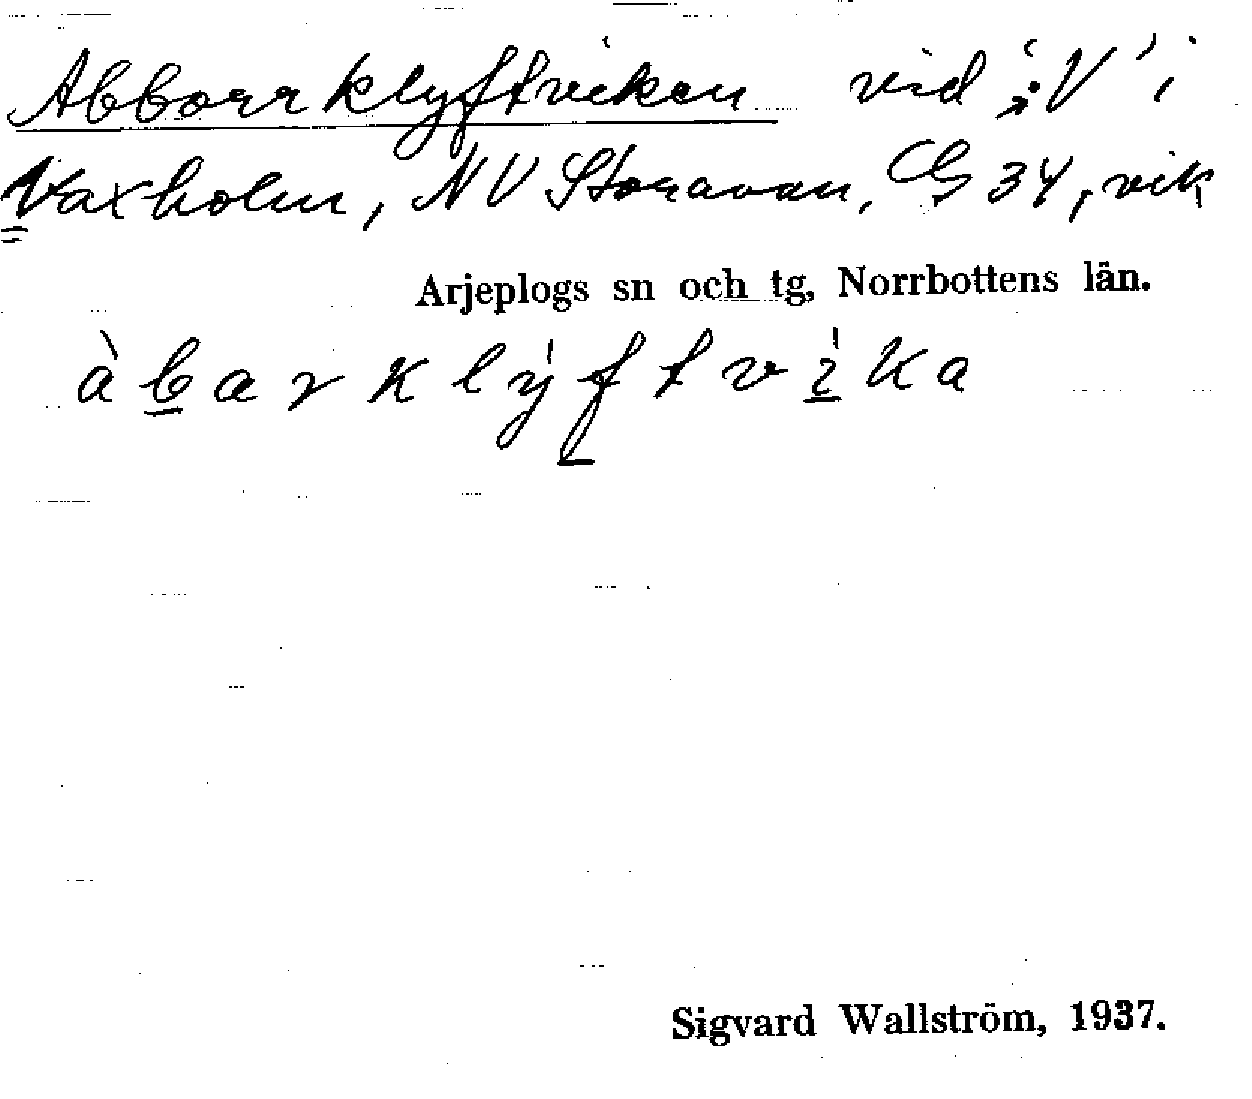 Abborrklyftviken vid 'V' i
Vaxholm, NV Storavan, G 34, vik
Arjeplogs sn och tg, Norrbottens län.
àbarklýftvika
Sigvard Wallström, 1937.